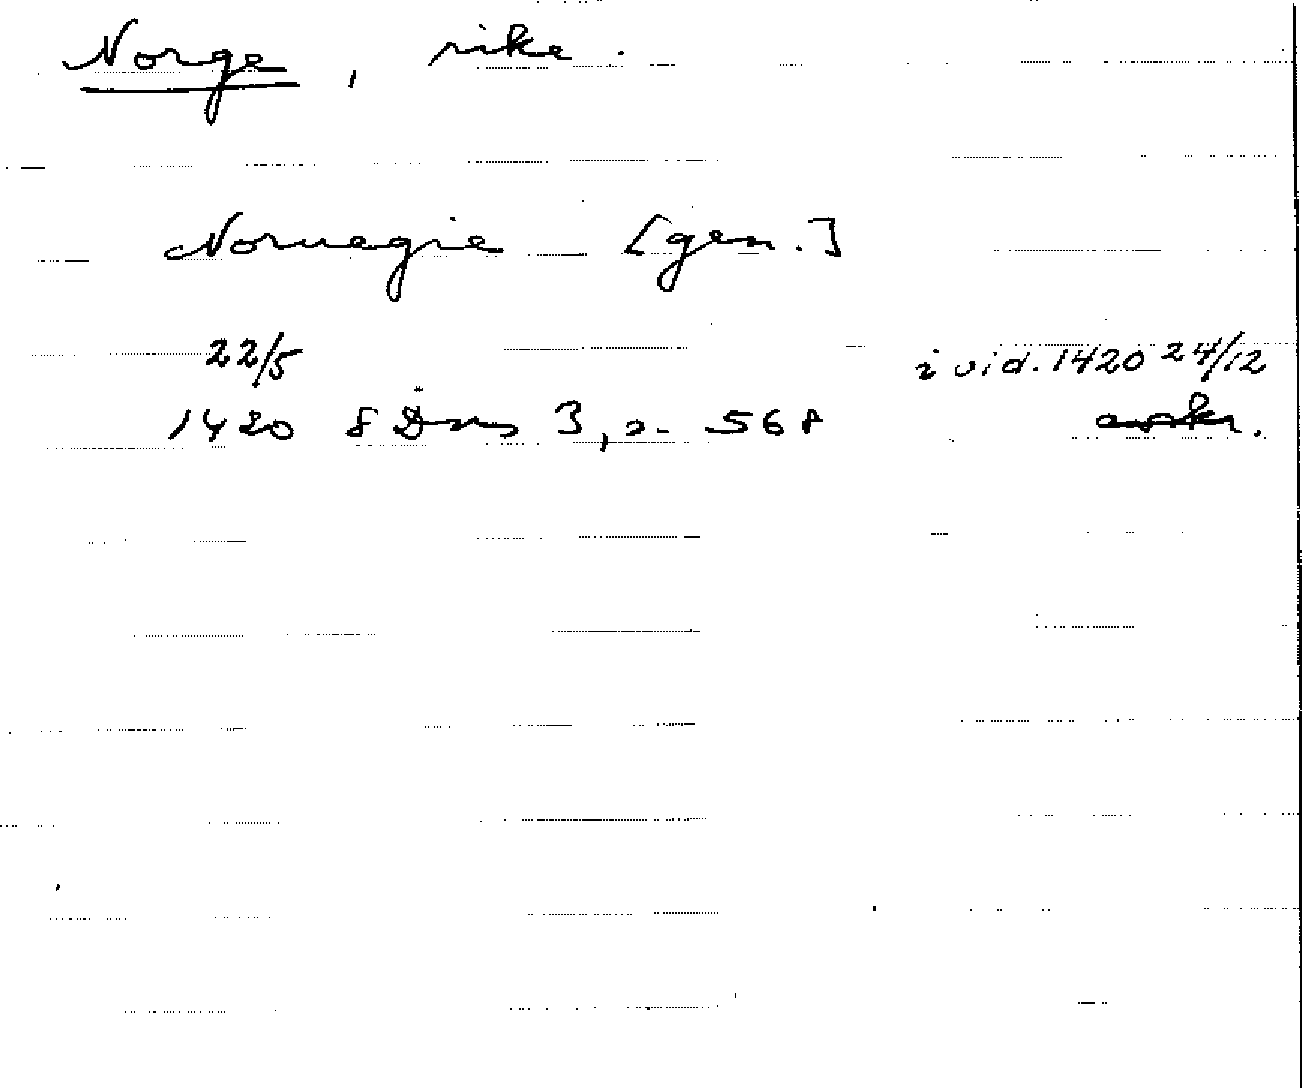 Norge, rike.
Noruegie [gen.]
22/5 i vid. 1420 24/12
1420 SDns 3, s. 568 avskr.